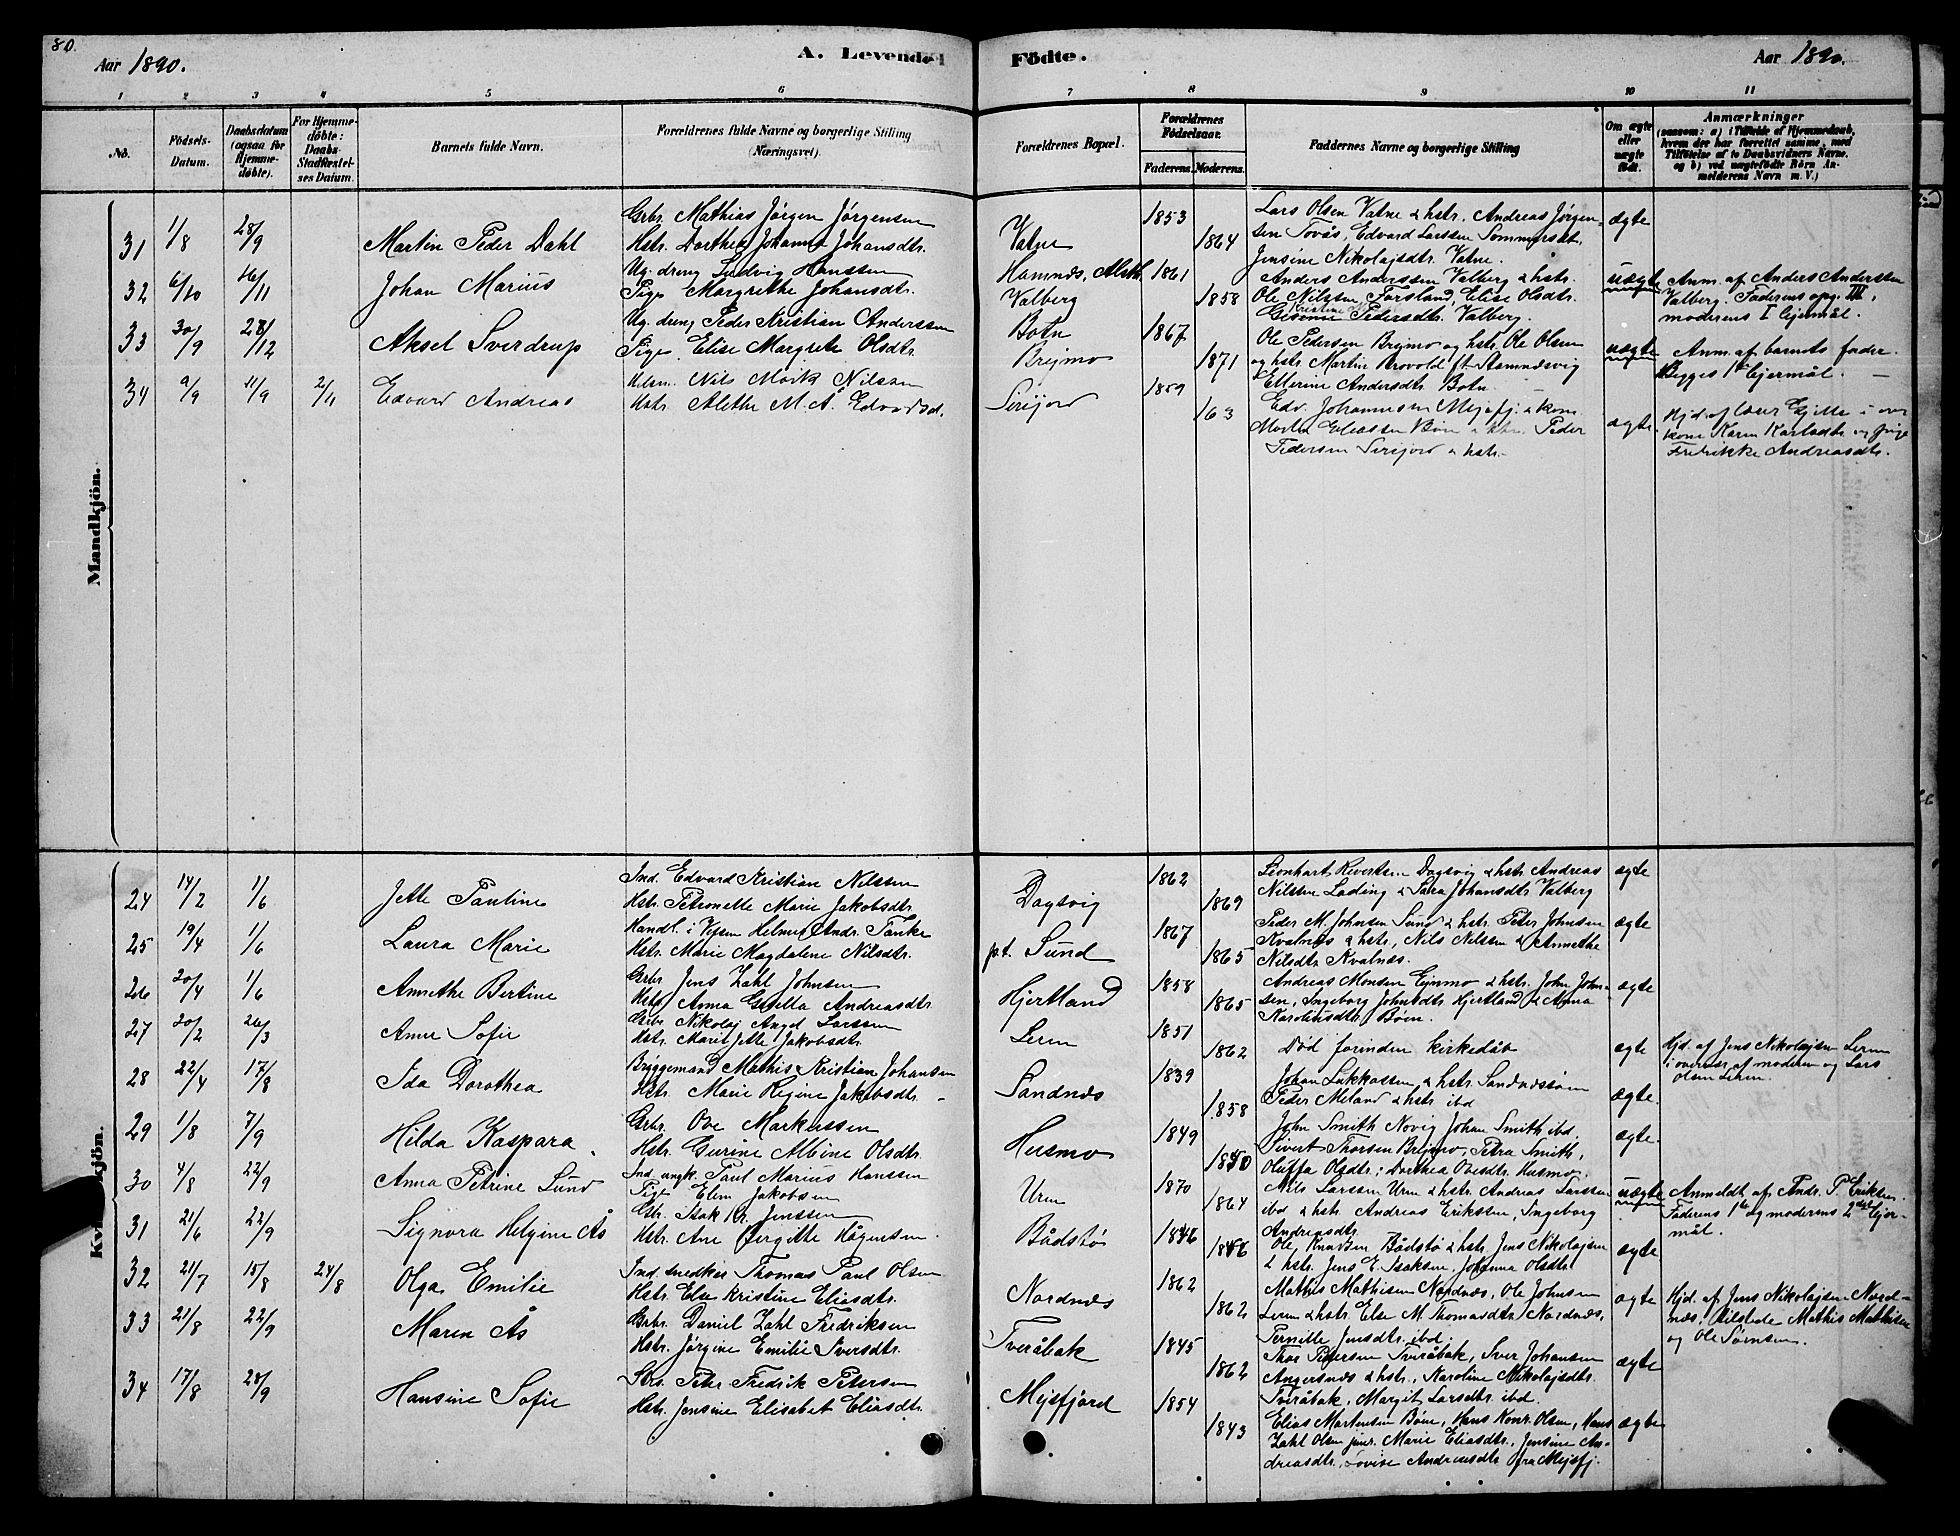 80.
Aar 1890.
A. Levende
Födte.
Aar 1890.
1 2 3 4 5 6 7 8 9 10 11
No.
Födsels-Datum.
Daabsdatum (ogsaa for Hjemme-döbte).
For Hjemme-döbte: Daabs-Stadfæstel-ses Datum.
Barnets fulde Navn.
Forældrenes fulde Navne og borgerlige Stilling (Næringsvei).
Forældrenes Bopæl.
Forældrenes Födselsaar.
Faderens. Moderens.
Faddernes Navne og borgerlige Stilling
Om ægte eller uægte födt.
Anmærkninger
(saasom: a) i Tilfælde af Hjemmedaab, hvem der har forrettet samme, med Tilföielse af to Daabsvidners Navne, og b) ved uægtefödte Börn An-melderens Navn m. V.)
Mandkjön.
31 1/8 28/9 Martin Peder Dahl
Grbr. Mathias Jørgen Jørgensen
Hstr. Dorthea Johanna Johansdtr.
Vatne 1853 1864
Lars Olsen Vatne & hstr. Andreas Jørgen-
sen Tovås, Edvard Larssen Sommerset,
Jensine Nikolajsdtr. Vatne.
ægte
32 6/10 16/11 Johan Marius
Ug. dreng Ludvig Hanssen
Pige Margrethe Johansdtr.
Hamnæs, Alsth.
Valberg 1861 1858
Anders Anderssen Valberg & hstr.
Ole Nilssen Forsland, Elise Olsdtr.
Pedersdtr. Valberg.
uægte
Anm. af Anders Andersen
Valberg. Faderens opg. III,
moderens I lejermål.
33 30/9 28/12 Aksel Sverdrup
Ug. dreng Peder Kristian Anderssen
Pige Elise Margrete Olsdtr.
Botn
Brejmo 1867 1871
Ole Pedersen Brejmo og hstr. Ole Olsen
og hstr. Martin Arovold Hamnæsvig
Ellerine Andersdtr. Botn
uægte
Anm. af barnets fader.
Begges 1ste lejermål.
34 9/9 11/9 2/11 Edvard Andreas
Nils Mørk Nilssen
Hstr. Alethe M. A. Edvardsd.
Sørfjord 1859 163
Edv. Johannessen Mejsfj. & kone
Morten Eliassen Bøen & hstr. Peder
Pedersen & hstr.
ægte.
Hjd. af
kone Karen Karlsdtr og pige
Fredrikke Andreasdtr.
Kvindekjön.
24 14/2 1/6 Jette Pauline
Ind. Edvard Kristian Nilssen
Hstr. Petronelle Marie Jakobsdtr
Dagsvig 1862 1869
Leonhart Dagsvig & hstr. Andreas
Nilssen Lading & Sara Johansdtr Valberg
ægte
25 19/4 1/6 Laura Marie
Handl. i Vefsen Helmer Andr. Tanke
Hstr. Marie Magdalene Nilsdtr.
p.t. Sund 1867 1865
Peder M. Johnsen Sund & hstr. Peter Johnsen
Kvalnæs & hstr, Nils Nilssen & Annethe
Nilsdtr. Kvalnæs.
ægte
26 20/4 1/6 Annethe Bertine
Grbr. Jens Zahl Johnsen
Hstr. Anna Gisella Andreasdtr.
Hjertland 1858 1865
Andreas Monsen Ejnmo & hstr. John John-
sen, Ingeborg Johnsdtr. Hjertland & Anna
Karolinusdtr. Bøen.
ægte
27 20/2 26/3 Anne Sofie
Grbr. Nikolaj Angel Larssen
Hstr. Marit Jette Jakobsdtr.
Leren 1851 1862
Død forinden kirkedåb
ægte
Hjd. af Jens Nikolajsen Leren
i overvær af moderen og Lars
Olsen Leren.
28 22/4 17/8 Ida Dorothea
Bryggemand Mathis Kristian Johansen
Hstr. Marie Regine Jakobsdtr.
Sandnæs 1839 1858
Johan Lukkassen & hstr. Sandnæssøen
Peder Meland & hstr ibd
ægte.
29 1/8 7/9 Hilda Kaspara.
Grbr. Ove Markussen
Hstr. Gurine Albine Olsdtr.
Husmo 1849 1850
John Smith Novig, Johan Smith ibd,
Sivert Thorsen Brejmo, Petra Smith,
Oluffa Olsdtr., Dorthea Ovesdtr. Husmo.
ægte.
30 4/8 22/9 Anna Petrine Lund
Ind. ungk. Paul Marius Hanssen
Pige Elen Jakobsen
Uren 1870 1864
Nils Larssen Uren & hstr. Andreas Larssen
ibd & hstr. Andreas Erikssen, Ingeborg
Andreasdtr.
uægte
Anmeldt af Andr. P. Eriksen.
Faderens 1ste og moderens 2det lejer-
mål.
31 21/6 22/9 Signora Helgine Ås
Gbr. Isak Kr. Jenssen
Hstr. Ane Bergitte Hågensen.
Bådstø 1846 1846
Ole Knudsen Bådstø & hstr. Jens Nikolajsen
& hstr. Jens E. Isaksen, Johanna Olsdtr
ægte
32 21/7 15/8 24/8 Olga Emilie
Ind. snedker Thomas Paul Olsen
Hstr. Else Kristine Eliasdtr.
Nordnæs 1862 1862
Mathis Mathisen Nordnæs, Ole Johnsen
Leren & hstr. Else M. Thomasdtr. Nordnæs,
Pernille Jensdtr. ibd.
ægte
Hjd. af Jens Nikolajsen Nord-
næs, tilstede Mathis Mathisen
og Ole Sørensen.
33 21/8 22/9 Maren Ås
Grbr. Daniel Zahl Fredriksen
Hstr. Jørgine Emilie Iversdtr.
Tveråbak 1845 1862
Thor Pedersen Tveråbak, Iver Johansen
Angersnæs & hstr., Karoline Nikolajsdtr.
Tveråbak, Margit Larsdtr. ibd.
ægte
34 17/8 28/9 Hansine Sofie
Peter Fredrik Petersen
Hstr. Jensine Elisabet Eliasdtr.
Mejsfjord 1854 1843
Elias Mortensen Bøen, Hans Konr. Olsen, Hans
Zahl Olsen junr. Marie Eliasdtr., Jensine An-
dreasdtr., Lovise Andreasdtr fra Mejsfj.
ægte